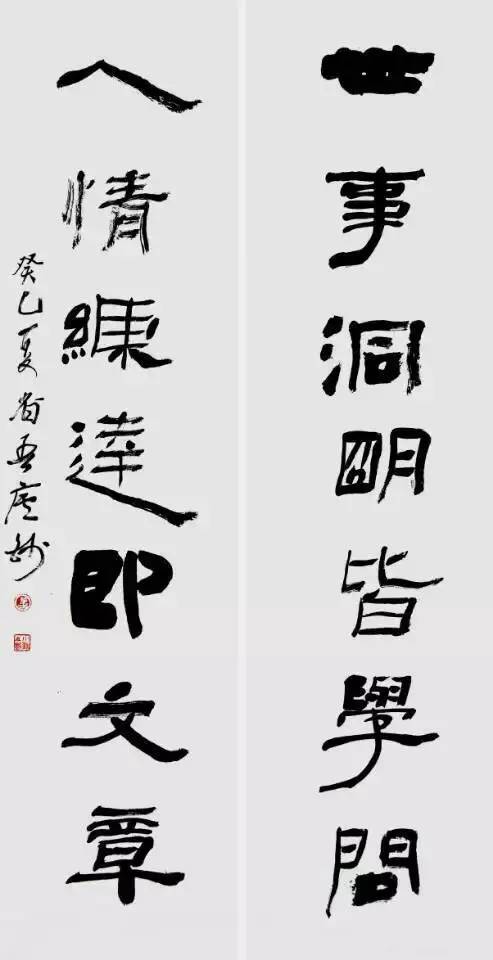 世事洞明皆學問
人情練達即文章
癸巳夏省吾